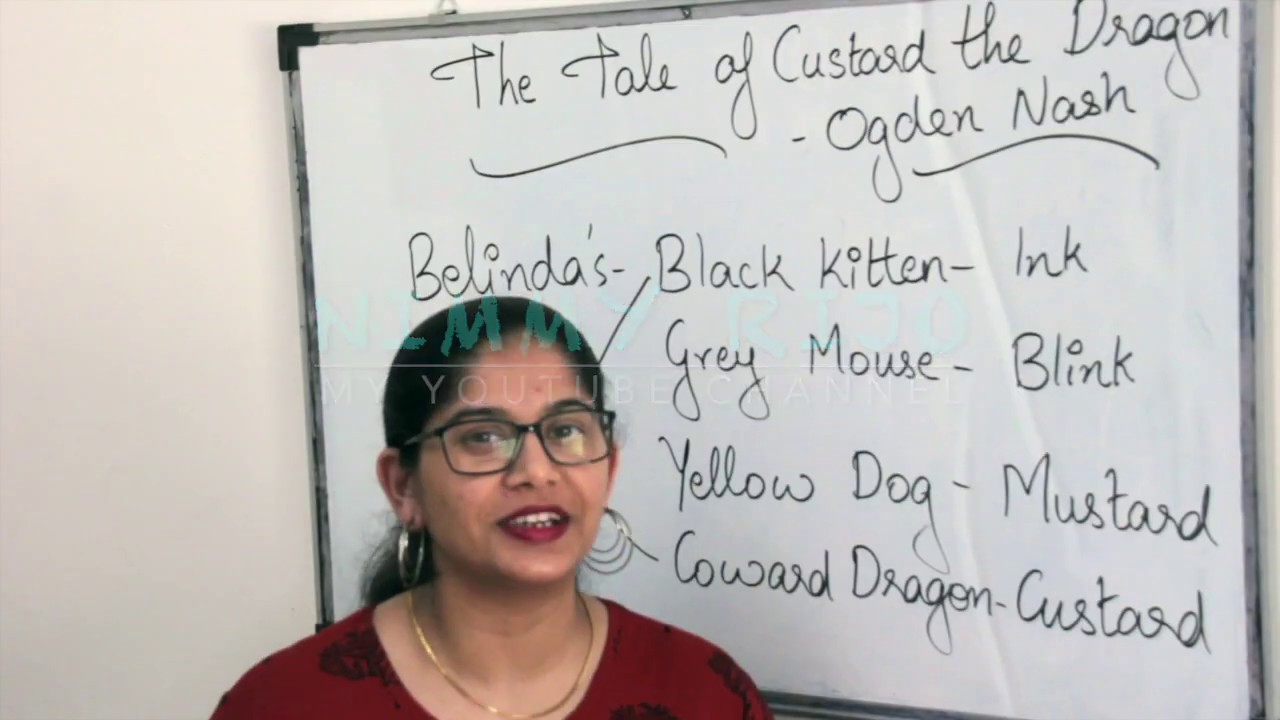 The Tale of Custard the Dragon
- Ogden Nash
Belinda's- Black Kitten- Ink
NIMMY RIJO
Grey Mouse- Blink
MY YOUTUBE CHANNEL
Yellow Dog - Mustard
Coward Dragon-Custard